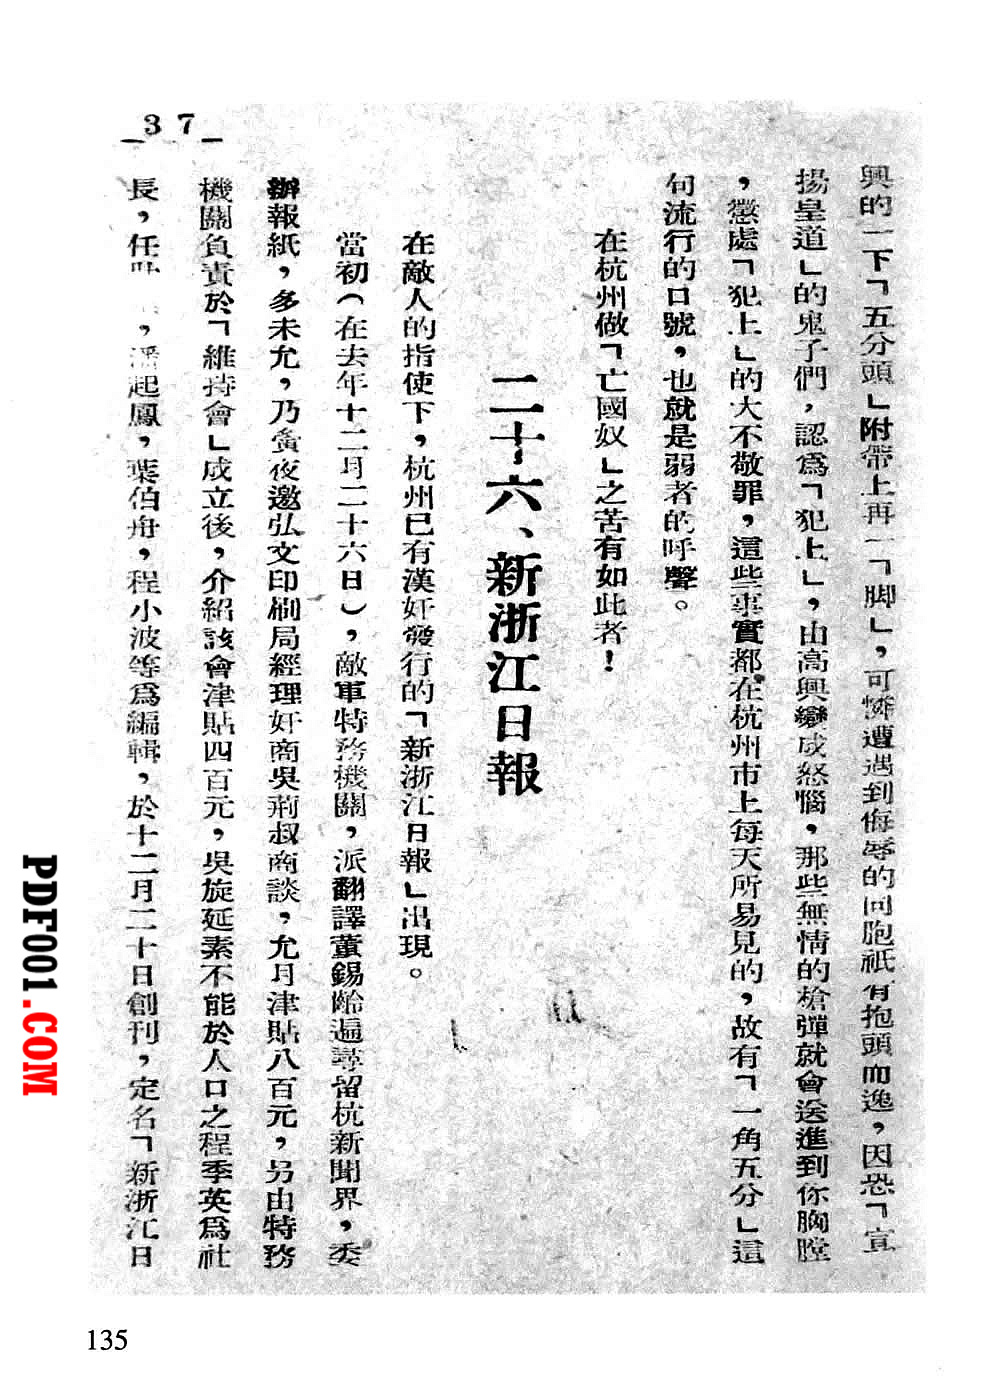 37
興的一下「五分頭」附帶上再一「脚」，可憐遭遇到侮辱的同胞祇有抱頭而逸，因恐「宣
揚皇道」的鬼子們，認爲「犯上」，由高興變成怒惱，那些無情的槍彈就會送進到你胸膛
，懲處「犯上」的大不敬罪，這些事實都在杭州市上每天所易見的，故有「一角五分」這
句流行的口號，也就是弱者的呼聲。
在杭州做「亡國奴」之苦有如此者！
二十六、新浙江日報
在敵人的指使下，杭州已有漢奸發行的「新浙江日報」出現。
當初（在去年十二月二十六日），敵軍特務機關，派翻譯董錫齡遍尋留杭新聞界，委
辦報紙，多未允，乃夤夜邀弘文印刷局經理奸商吳荊叔商談，允月津貼八百元，另由特務
機關負責於「維持會」成立後，介紹該會津貼四百元，吳旋延素不能於人口之程季英爲社
長，任，潘起鳳，葉伯舟，程小波等爲編輯，於十二月二十日創刊，定名「新浙江日
PDF001.COM
135